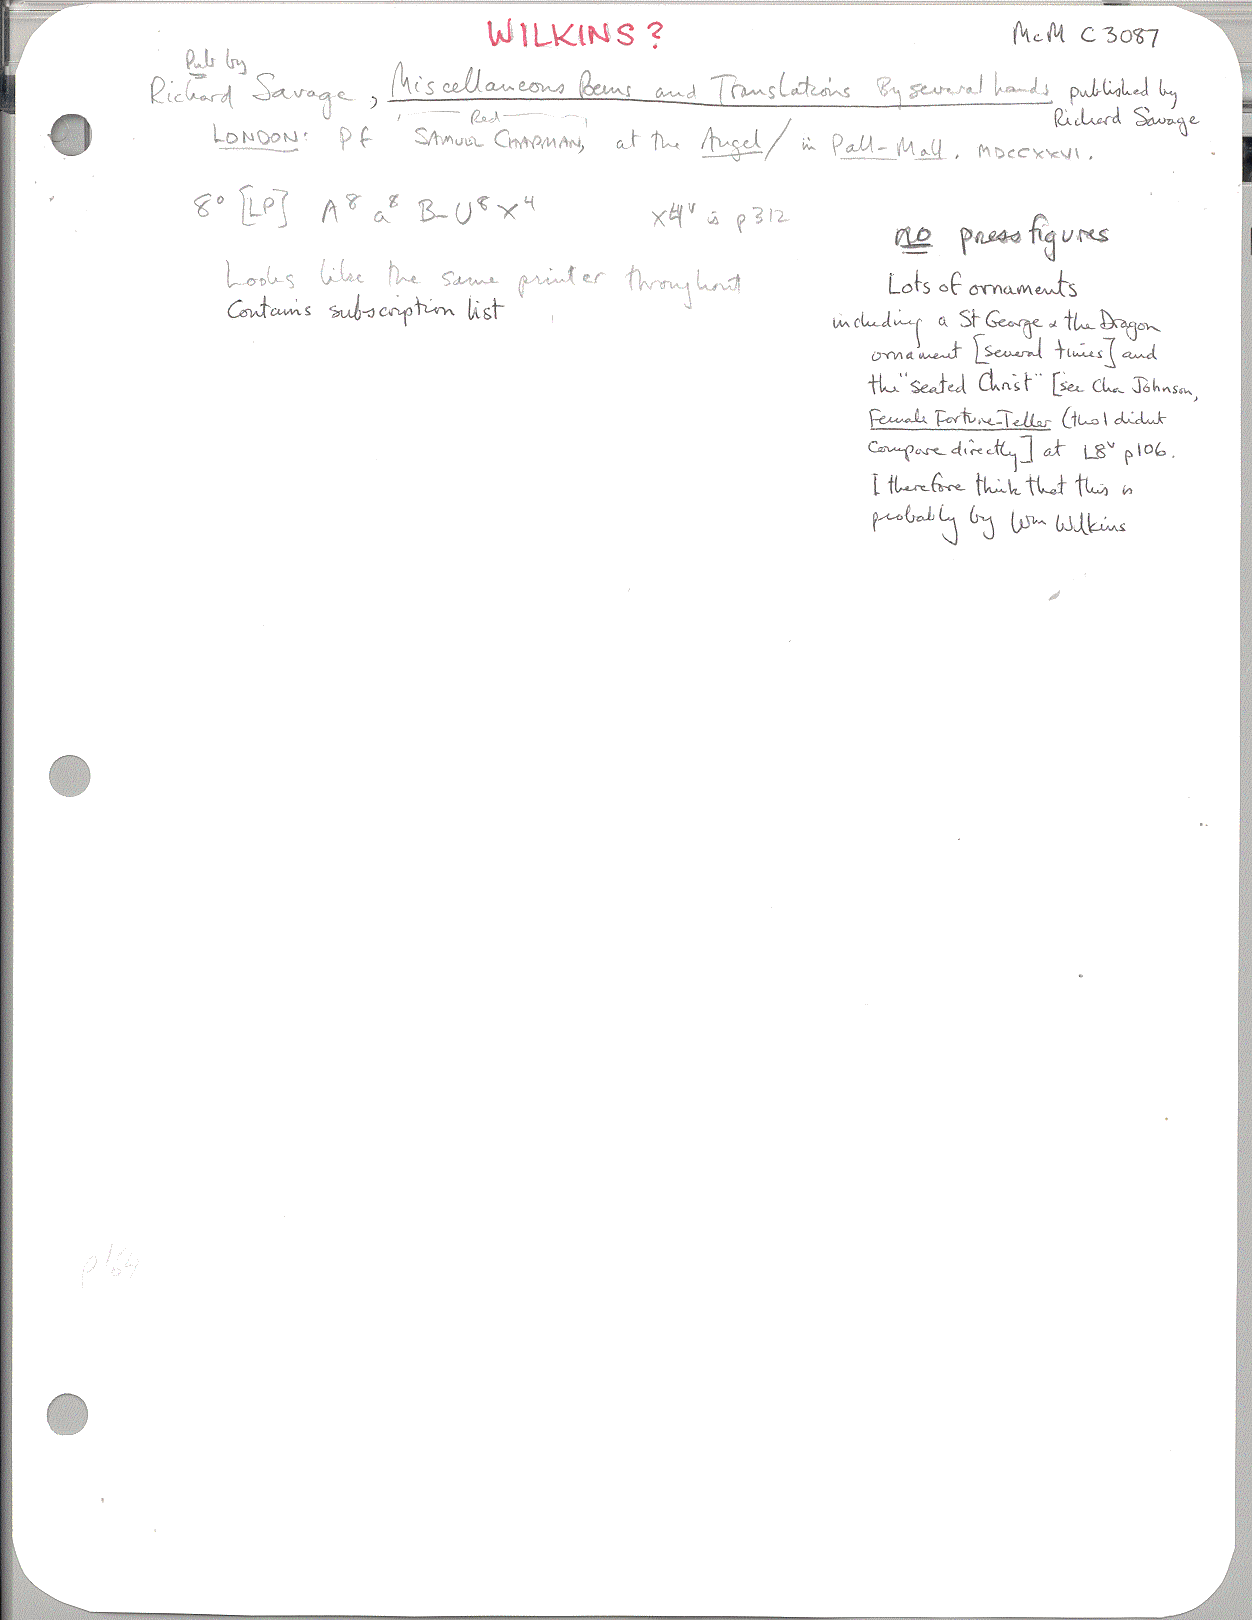 WILKINS?
McM C3087
Pub by
Richard Savage, Miscellaneous Poems and Translations By several hands published by
Richard Savage
Red
LONDON: Pf SAMUEL CHAPMAN, at the Angel/ in Pall-Mall. MDCCXXVI.
8° [LP] A⁸ a⁸ B–U⁸ X⁴
X4ᵛ is p312
Looks like the same printer throughout
Contains subscription list
no press figures
Lots of ornaments
including a St George & the Dragon
ornament [several times] and
the "seated Christ" [see Cha Johnson,
Female Fortune-Teller (tho I didnt
compare directly] at L8ᵛ p106.
I therefore think that this is
probably by Wm Wilkins
p164